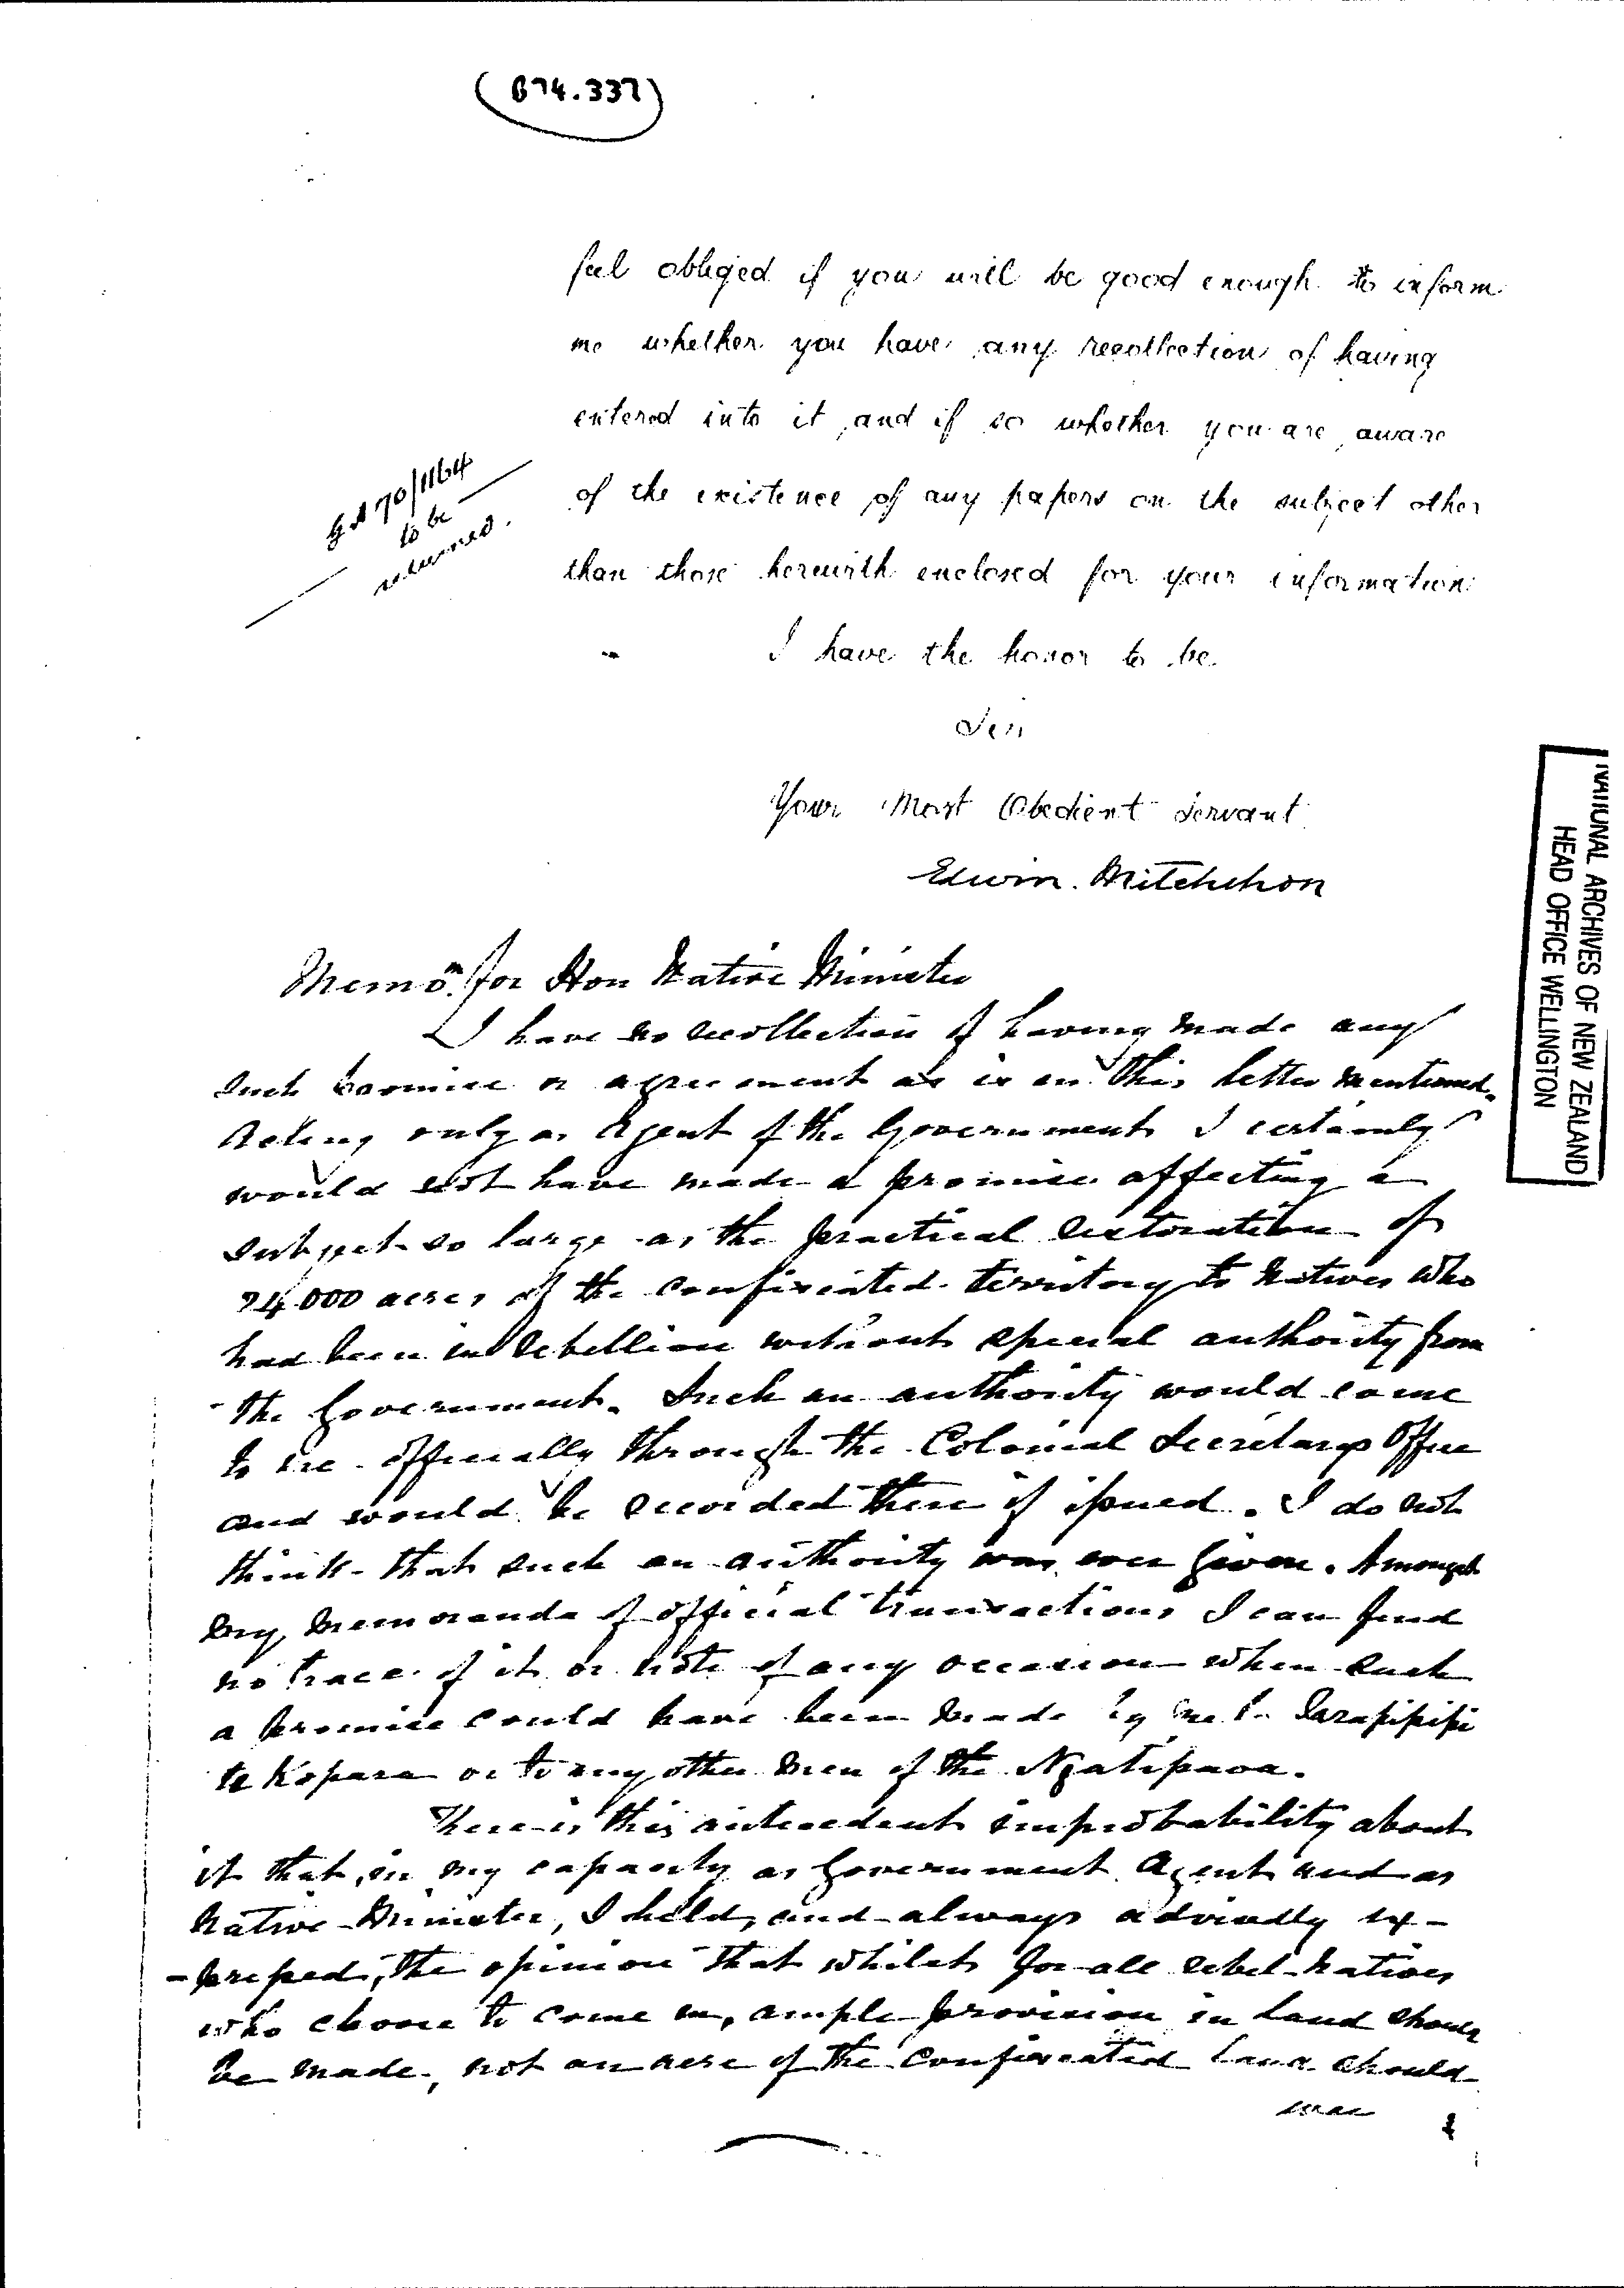 (B74.337)
feel obliged if you will be good enough to inform
me whether you have any recollection of having
entered into it, and if so whether you are, aware
of the existence of any papers on the subject other
than those herewith enclosed for your information
I have the honor to be
Sir
Your Most Obedient Servant
Edwin. Mitchelson
70/1164
to be
returned.
Memo.m for Hon Native Minister
I have no recollection of having made any
such promise or agreement as is in this letter mentioned.
Acting only as Agent of the Government I certainly
would not have made a promise affecting a
subject so large as the practical restoration of
24.000 acres of the confiscated territory to Natives who
had been in rebellion without special authority from
the Government. Such an authority would come
to me officially through the Colonial Secretarys Office
and would be recorded there if issued. I do not
think that such an authority was ever given. Amongst
my memoranda of official transactions I can find
no trace of it or note of any occasion when such
a promise could have been made by me to Tarapipipi
te Kopara or to any other men of the Ngatipaoa.
There is this antecedent improbability about
it that, in my capacity as Government Agent and as
Native Minister, I held, and always advisedly ex-
-pressed, the opinion that whilst for all rebel Natives
who choose to come in, ample provision in land should
be made, not an acre of the confiscated land should
NATIONAL ARCHIVES OF NEW ZEALAND
HEAD OFFICE WELLINGTON